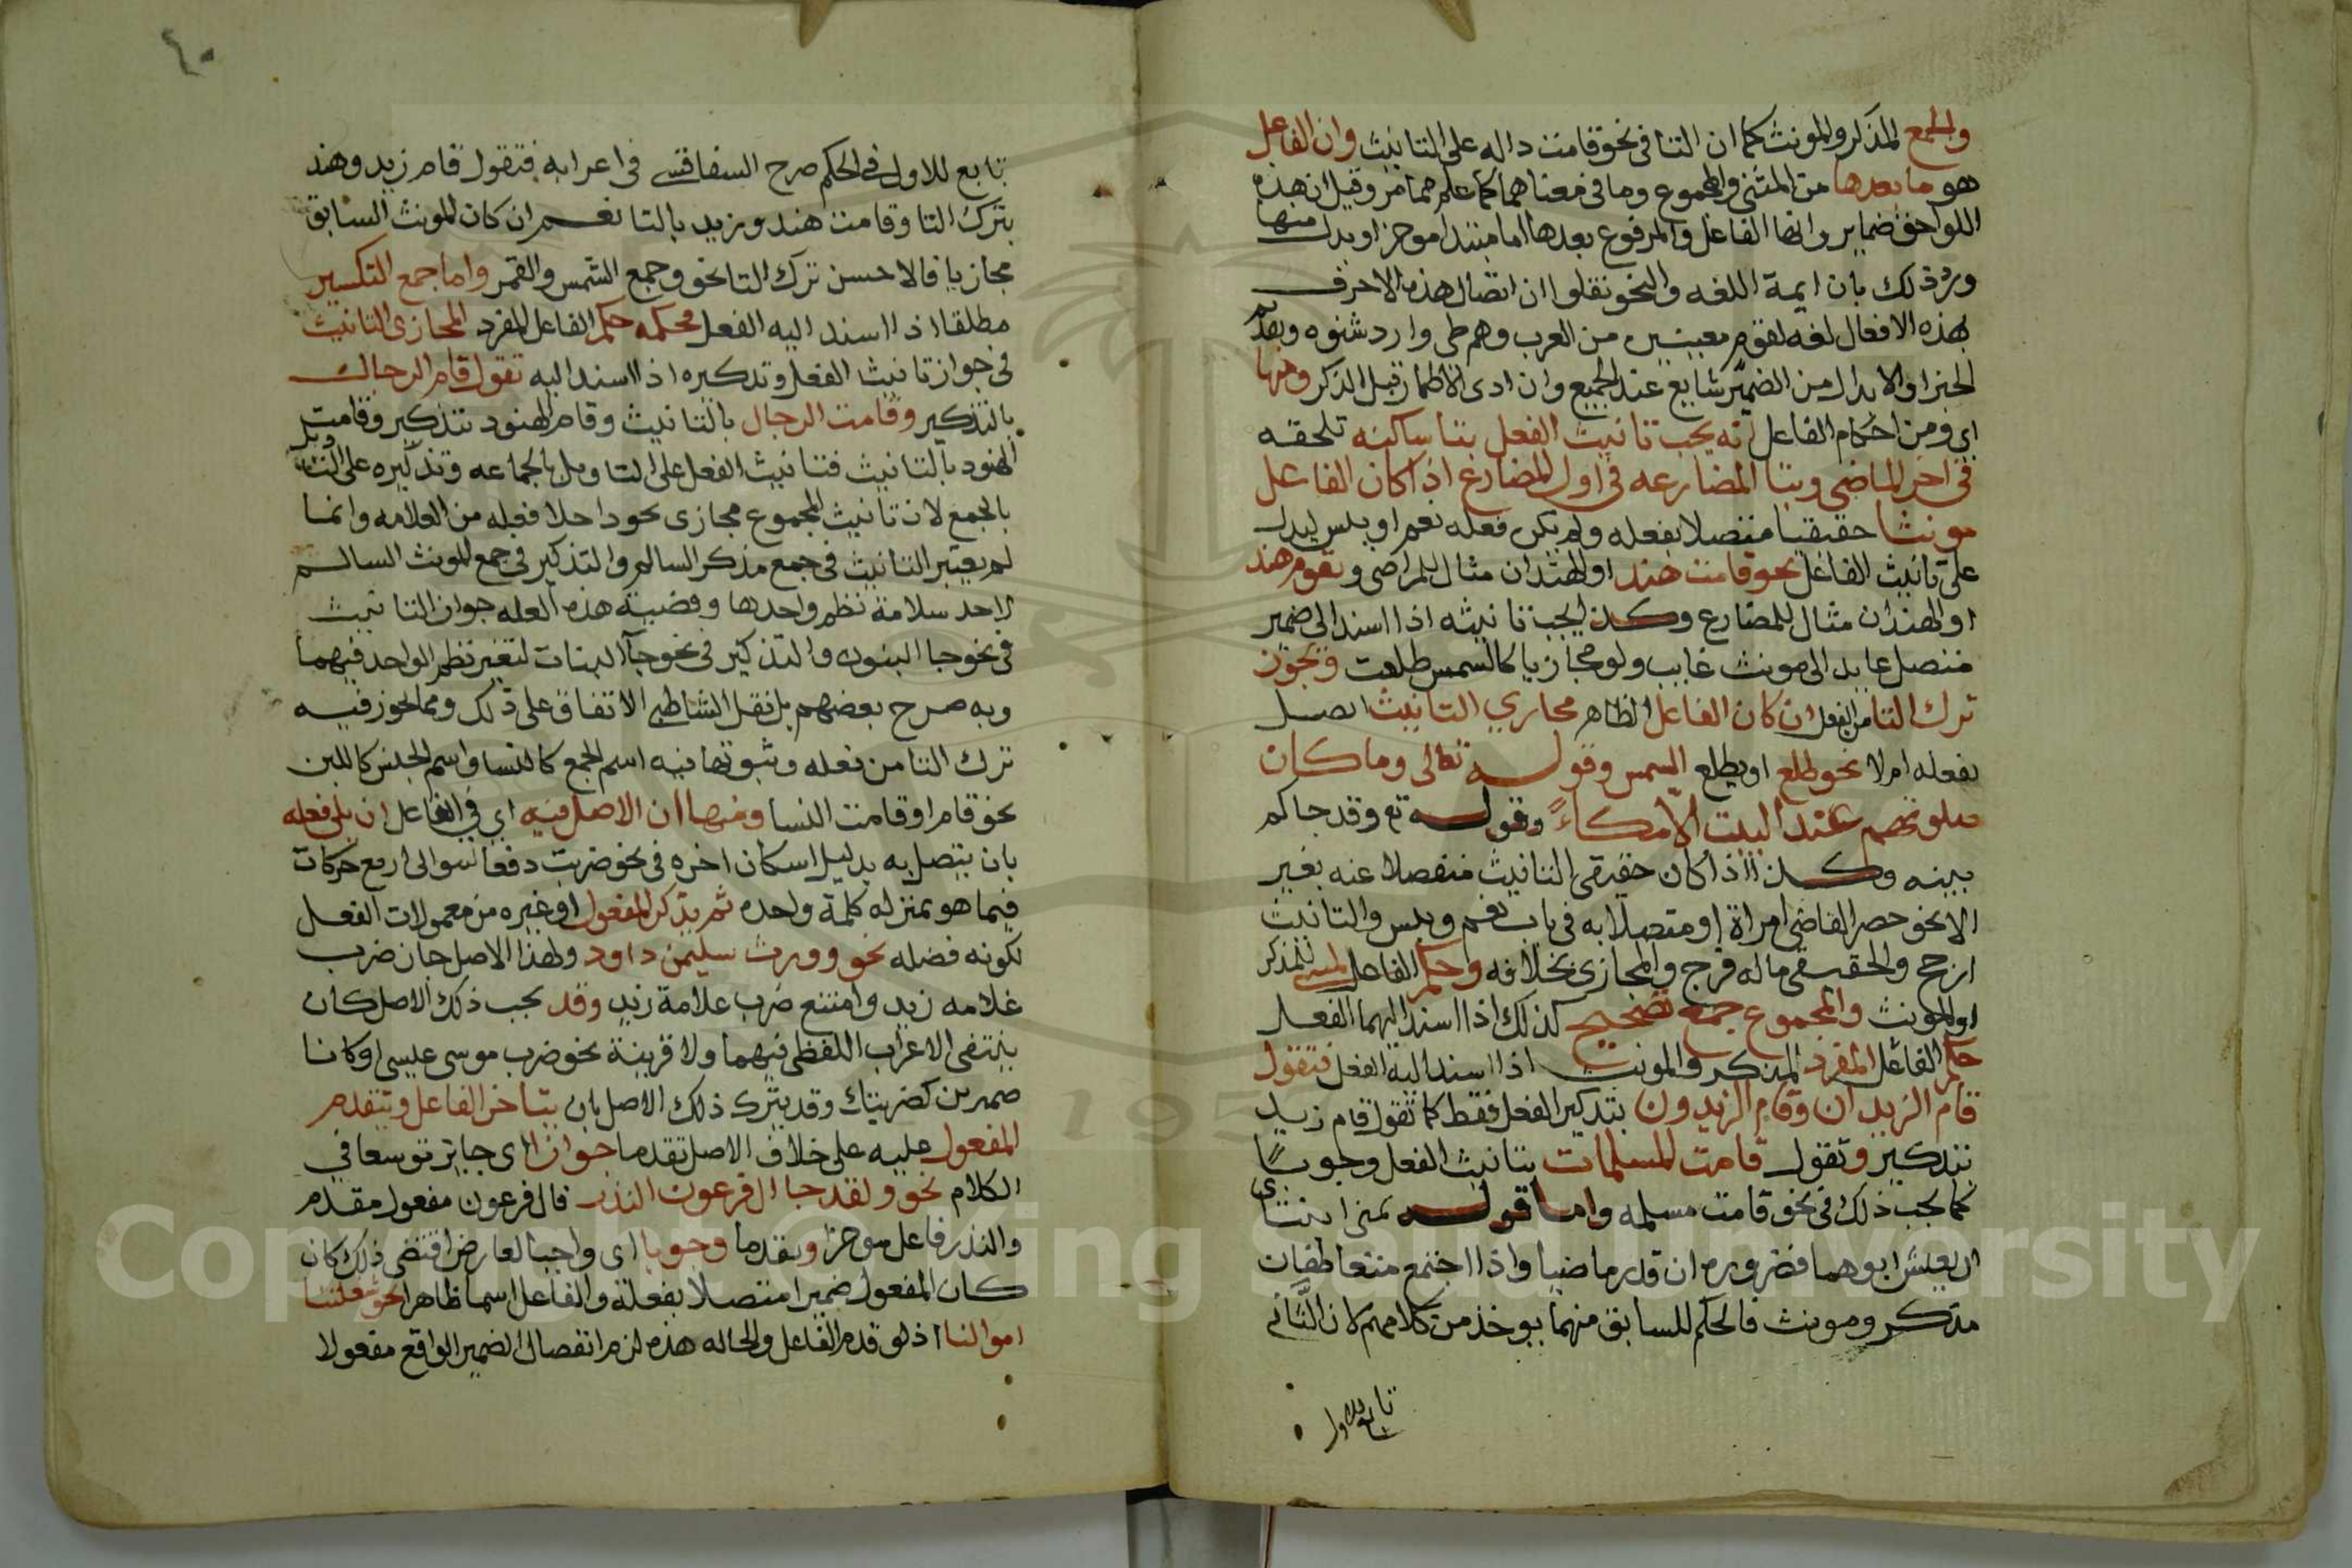 والجمع المذكر والمونث كما ان التا فى نحو قامت داله على التانيث وان الفاعل
هو ما بعدها من المثنى والمجموع وما فى معناهما كما علم مما مر وقيل ان هذه
اللواحق ضماير وانها الفاعل والمرفوع بعدها اما مبتدا موخر او بدل منها
ورد ذلك بان ايمة اللغه والنحو نقلوا ان اتصال هذه الاحرف
بهذه الافعال لغه لقوم معينين من العرب وهم طى وازد شنوه وتقدم
الخبر او الابدال من الضمير شايع عند الجميع وان ادى الاظمار قبل الذكر ومنها
اى ومن احكام الفاعل انه يجب تانيث الفعل بتا ساكنه تلحقه
فى اخر الماضى وبتا المضارعه فى اول المضارع اذا كان الفاعل
مونثا حقيقيا متصلا بفعله ولم يكن فعله نعم او بيس ليدل
على تانيث الفاعل نحو قامت هند او الهندان مثال للماضى وتقوم هند
او الهندان مثال للمضارع وكذا يجب تانيثه اذا اسند الى ضمير
متصل عايد الى مونث غايب ولو مجازيا كالشمس طلعت ويجوز
ترك التا من الفعل ان كان الفاعل الظاهر مجازي التانيث اتصل
بفعله ام لا نحو طلع او يطلع الشمس وقوله تعالى وما كان
صلوتهم عند البيت الا مكاءً وقوله تع وقد جاكم
بينه وكذا اذا كان حقيقى التانيث منفصلا عنه بغير
الا نحو حضر القاضى امراة او متصلا به فى باب نعم وبيس والتانيث
ارجح والحقيقى ماله فرج والمجازى بخلافه وحكم الفاعل المسى للمذكر
او المونث والمجموع جمع تصحيح كذلك اذا اسند اليهما الفعل
حكم الفاعل المفرد المذكر والمونث اذا اسند اليه الفعل فتقول
قام الزيدان وقام الزيدون بتذكير الفعل فقط كما تقول قام زيد
بتذكير وتقول قامت المسلمات بتانيث الفعل وجوبًا
كما يجب ذلك فى نحو قامت مسلمه واما قوله تمنى ابنتاى
ان يعيش ابوهما فضروره ان قدر ماضيا واذا اجتمع متعاطفان
مذكر ومونث فالحكم للسابق منهما يوخذ من كلامهم لان الثَّانى
تابع للاول
٤٠
تابع للاول فى الحكم صرح السفاقسى فى اعرابه فتقول قام زيد وهند
بترك التا وقامت هند وزيد بالتا نعم ان كان المونث السابق
مجازيا فالاحسن ترك التا نحو وجمع الشمس والقمر واما جمع التكسير
مطلقا اذا اسند اليه الفعل فحكمه حكم الفاعل المفرد المجازى التانيث
فى جواز تانيث الفعل وتذكيره اذا اسند اليه تقول قام الرجال
بالتذكير وقامت الرجال بالتانيث وقام الهنود بتذكير وقامت
الهنود بالتانيث فتانيث الفعل على التاويل بالجماعه وتذكيره على التاويل
بالجمع لان تانيث المجموع مجازى يجوز اخلا فعله من العلامه وانما
لم يعتبر التانيث فى جمع مذكر السالم والتذكير فى جمع المونث السالم
لاجل سلامة نظم واحدها وقضية هذه العله جواز التانيث
فى نحو جا البنون والتذكير فى نحو جآ البنات لتغير نظم الواحد فيهما
وبه صرح بعضهم بل نقل الشاطبى الاتفاق على ذلك ومما يجوز فيه
ترك التا من فعله وثبوتها فيه اسم الجمع كالنسا واسم الجنس كاللبن
نحو قام او قامت النسا ومنها ان الاصل فيه اى فى الفاعل ان يلى فعله
بان يتصل به بدليل اسكان اخره فى نحو ضربت دفعا لتوالى اربع حركات
فيما هو بمنزله كلمة واحده ثم يذكر المفعول او غيره من معمولات الفعل
لكونه فضله نحو وورث سليمن داود ولهذا الاصل جاز ضرب
غلامه زيد وامتنع ضرب غلامة زيد وقد يجب ذلك الاصل كان
ينتفى الاعراب اللفظى فيهما ولا قرينة نحو ضرب موسى عيسى او كانا
ضميرين كضربتك وقد يترك ذلك الاصل بان يتاخر الفاعل ويتقدم
المفعول عليه على خلاف الاصل تقدما جوازا اى جايز توسعا فى
الكلام نحو ولقد جا ال فرعون النذر فال فرعون مفعول مقدم
والنذر فاعل موخر وتقدما وجوبا اى واجبا لعارض اقتضى ذلك كان
كان المفعول ضميرا متصلا بفعله والفاعل اسما ظاهرا نحو شغلتنا
اموالنا اذ لو قدم الفاعل والحاله هذه لزم انفصال الضمير الواقع مفعولا
Copyright © King Saud University
1957